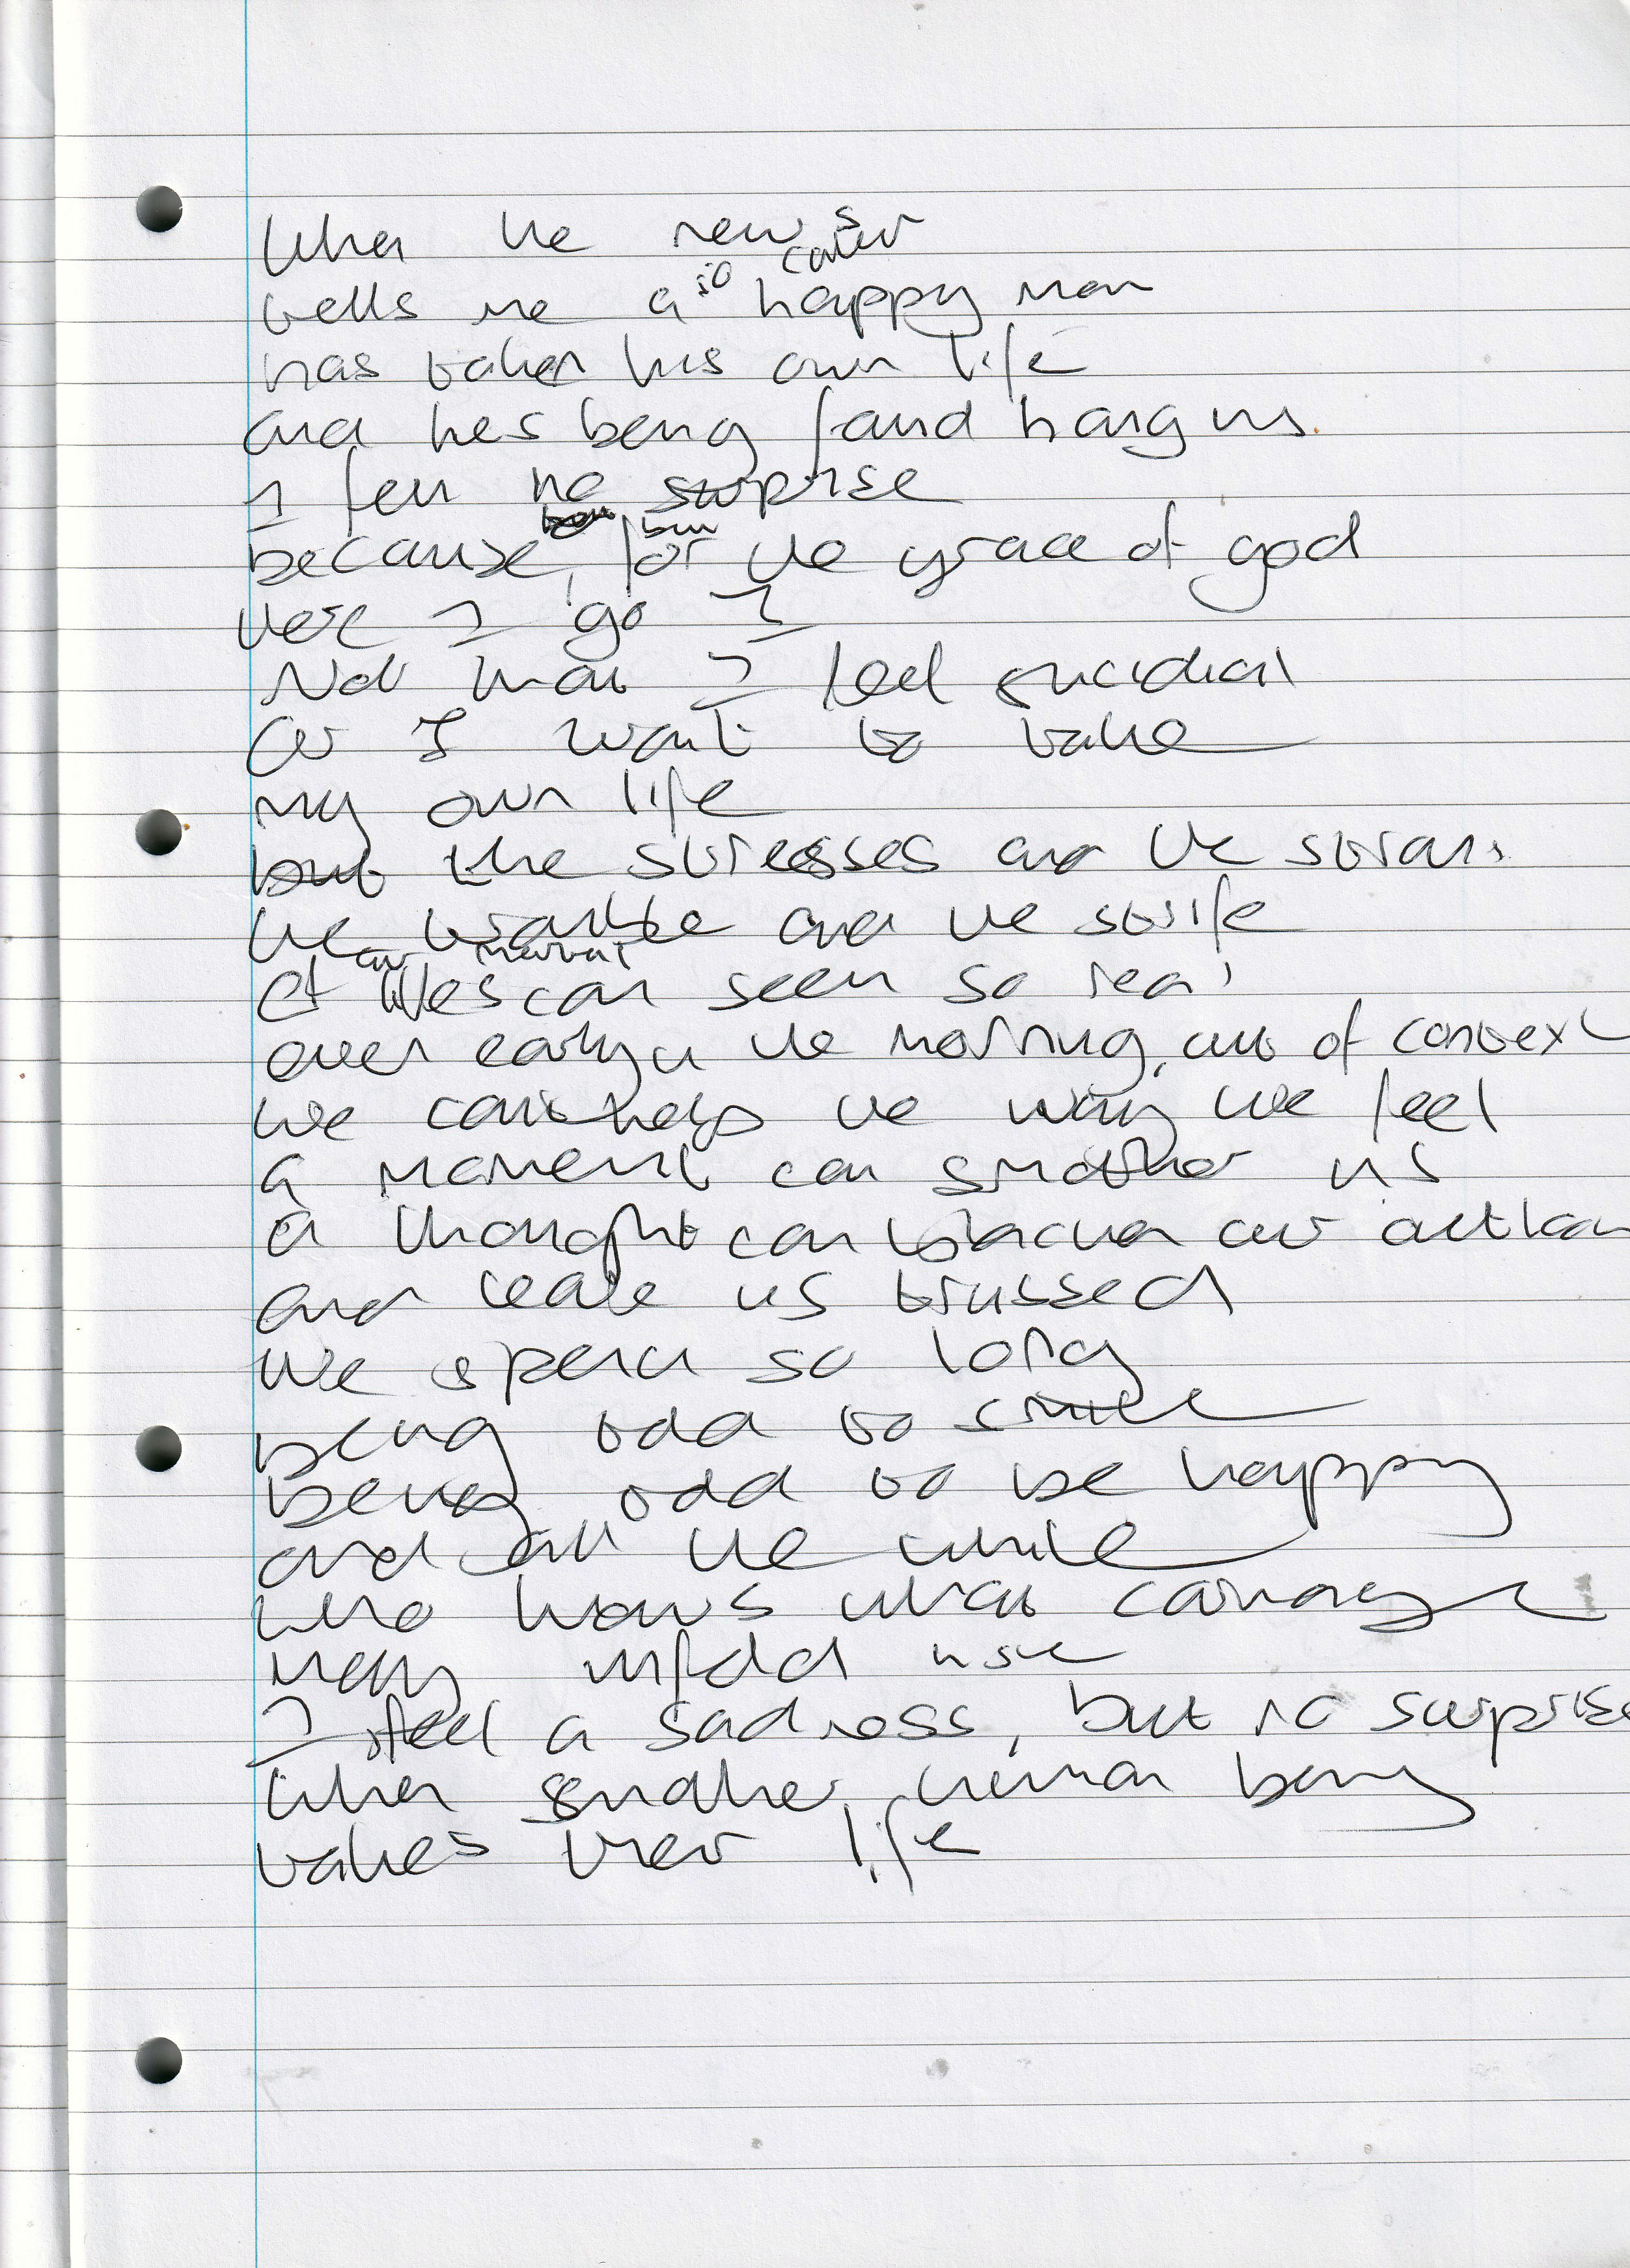 When the newscaster
tells me a so happy man
has taken his own life
and hes being found hanging
I feel no surprise
because, but for the grace of god
there I go I
Not that I feel suicidal
Or I want to take
my own life
but the stresses and the strains
the trouble and the strife
of our lives can seem so real
over early in the morning, out of context
we cant help the way we feel
a moment can smother us
a thought can blacken our outlook
and leave us trussed
we spend so long
being told to smile
being told to be happy
and all the while
who knows what carnage
may unfold inside
I feel a sadness, but no surprise
when another human being
takes their life